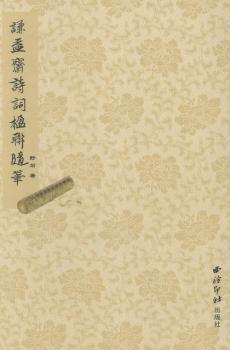 謙益齋詩詞楹聯隨筆
舒翔 著
西泠印社
出版社